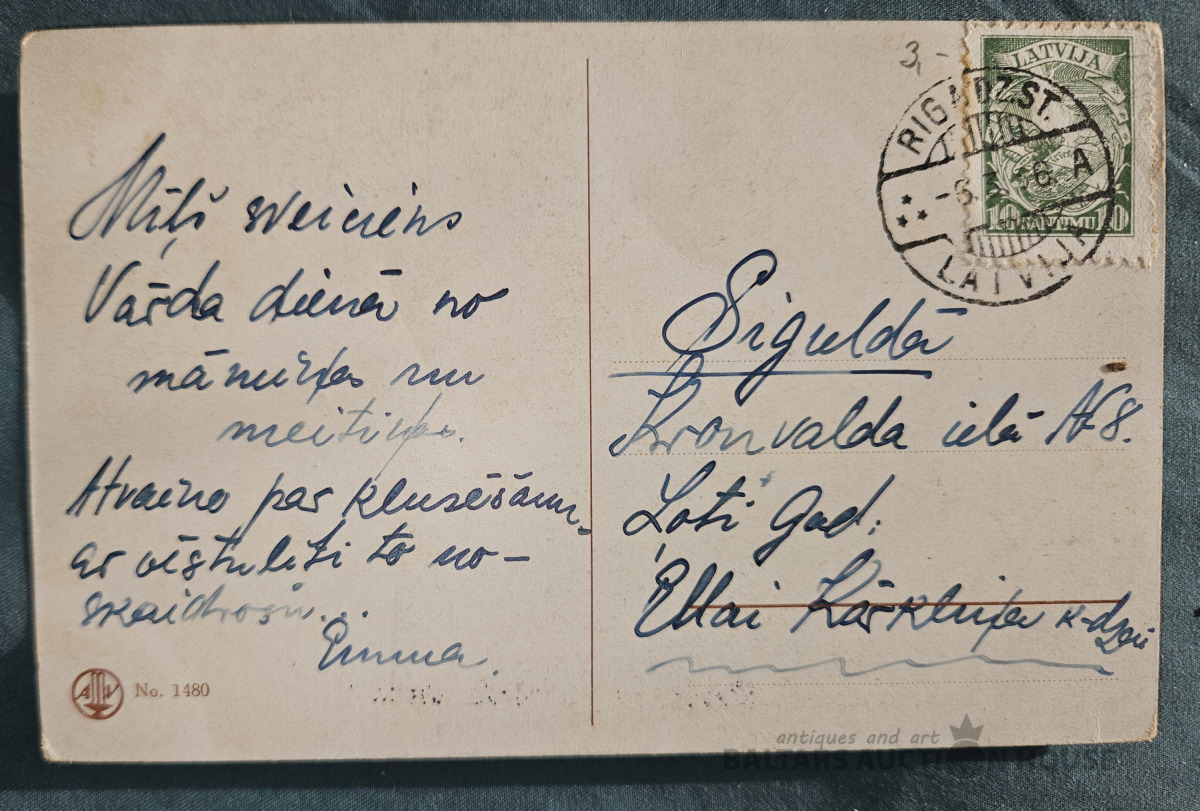 Mīļš sveiciens
Vārda dienā no
māmiņas un
meitiņas.
Atvaino par klusēšanu,
ar vēstulīti to no-
skaidrošu...
Emma.
No. 1480
3,-
LATVIJA
10 SANTIMU 10
RIGA DZ.ST.
A
LATVIJA
Siguldā
Kronvalda ielā № 8.
Ļoti God.
Ellai Kārkliņa k-dzei
antiques and art
BALTARS AUCTION HOUSE